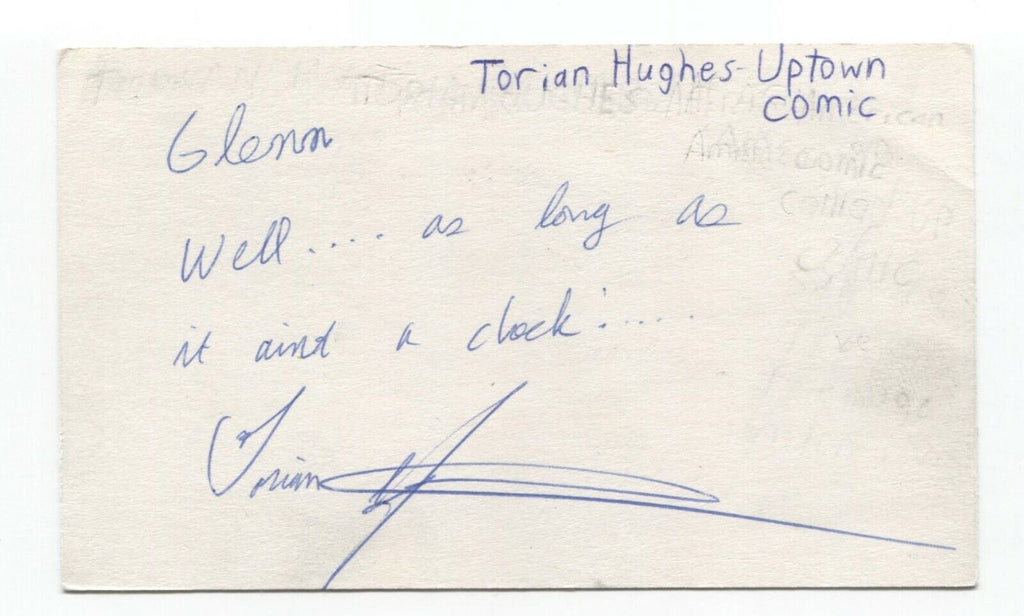 Torian Hughes-Uptown
comic
TORIAN HUGHES
comic
Glenn
Well.... as long as
it aint a clock!.....
Torian